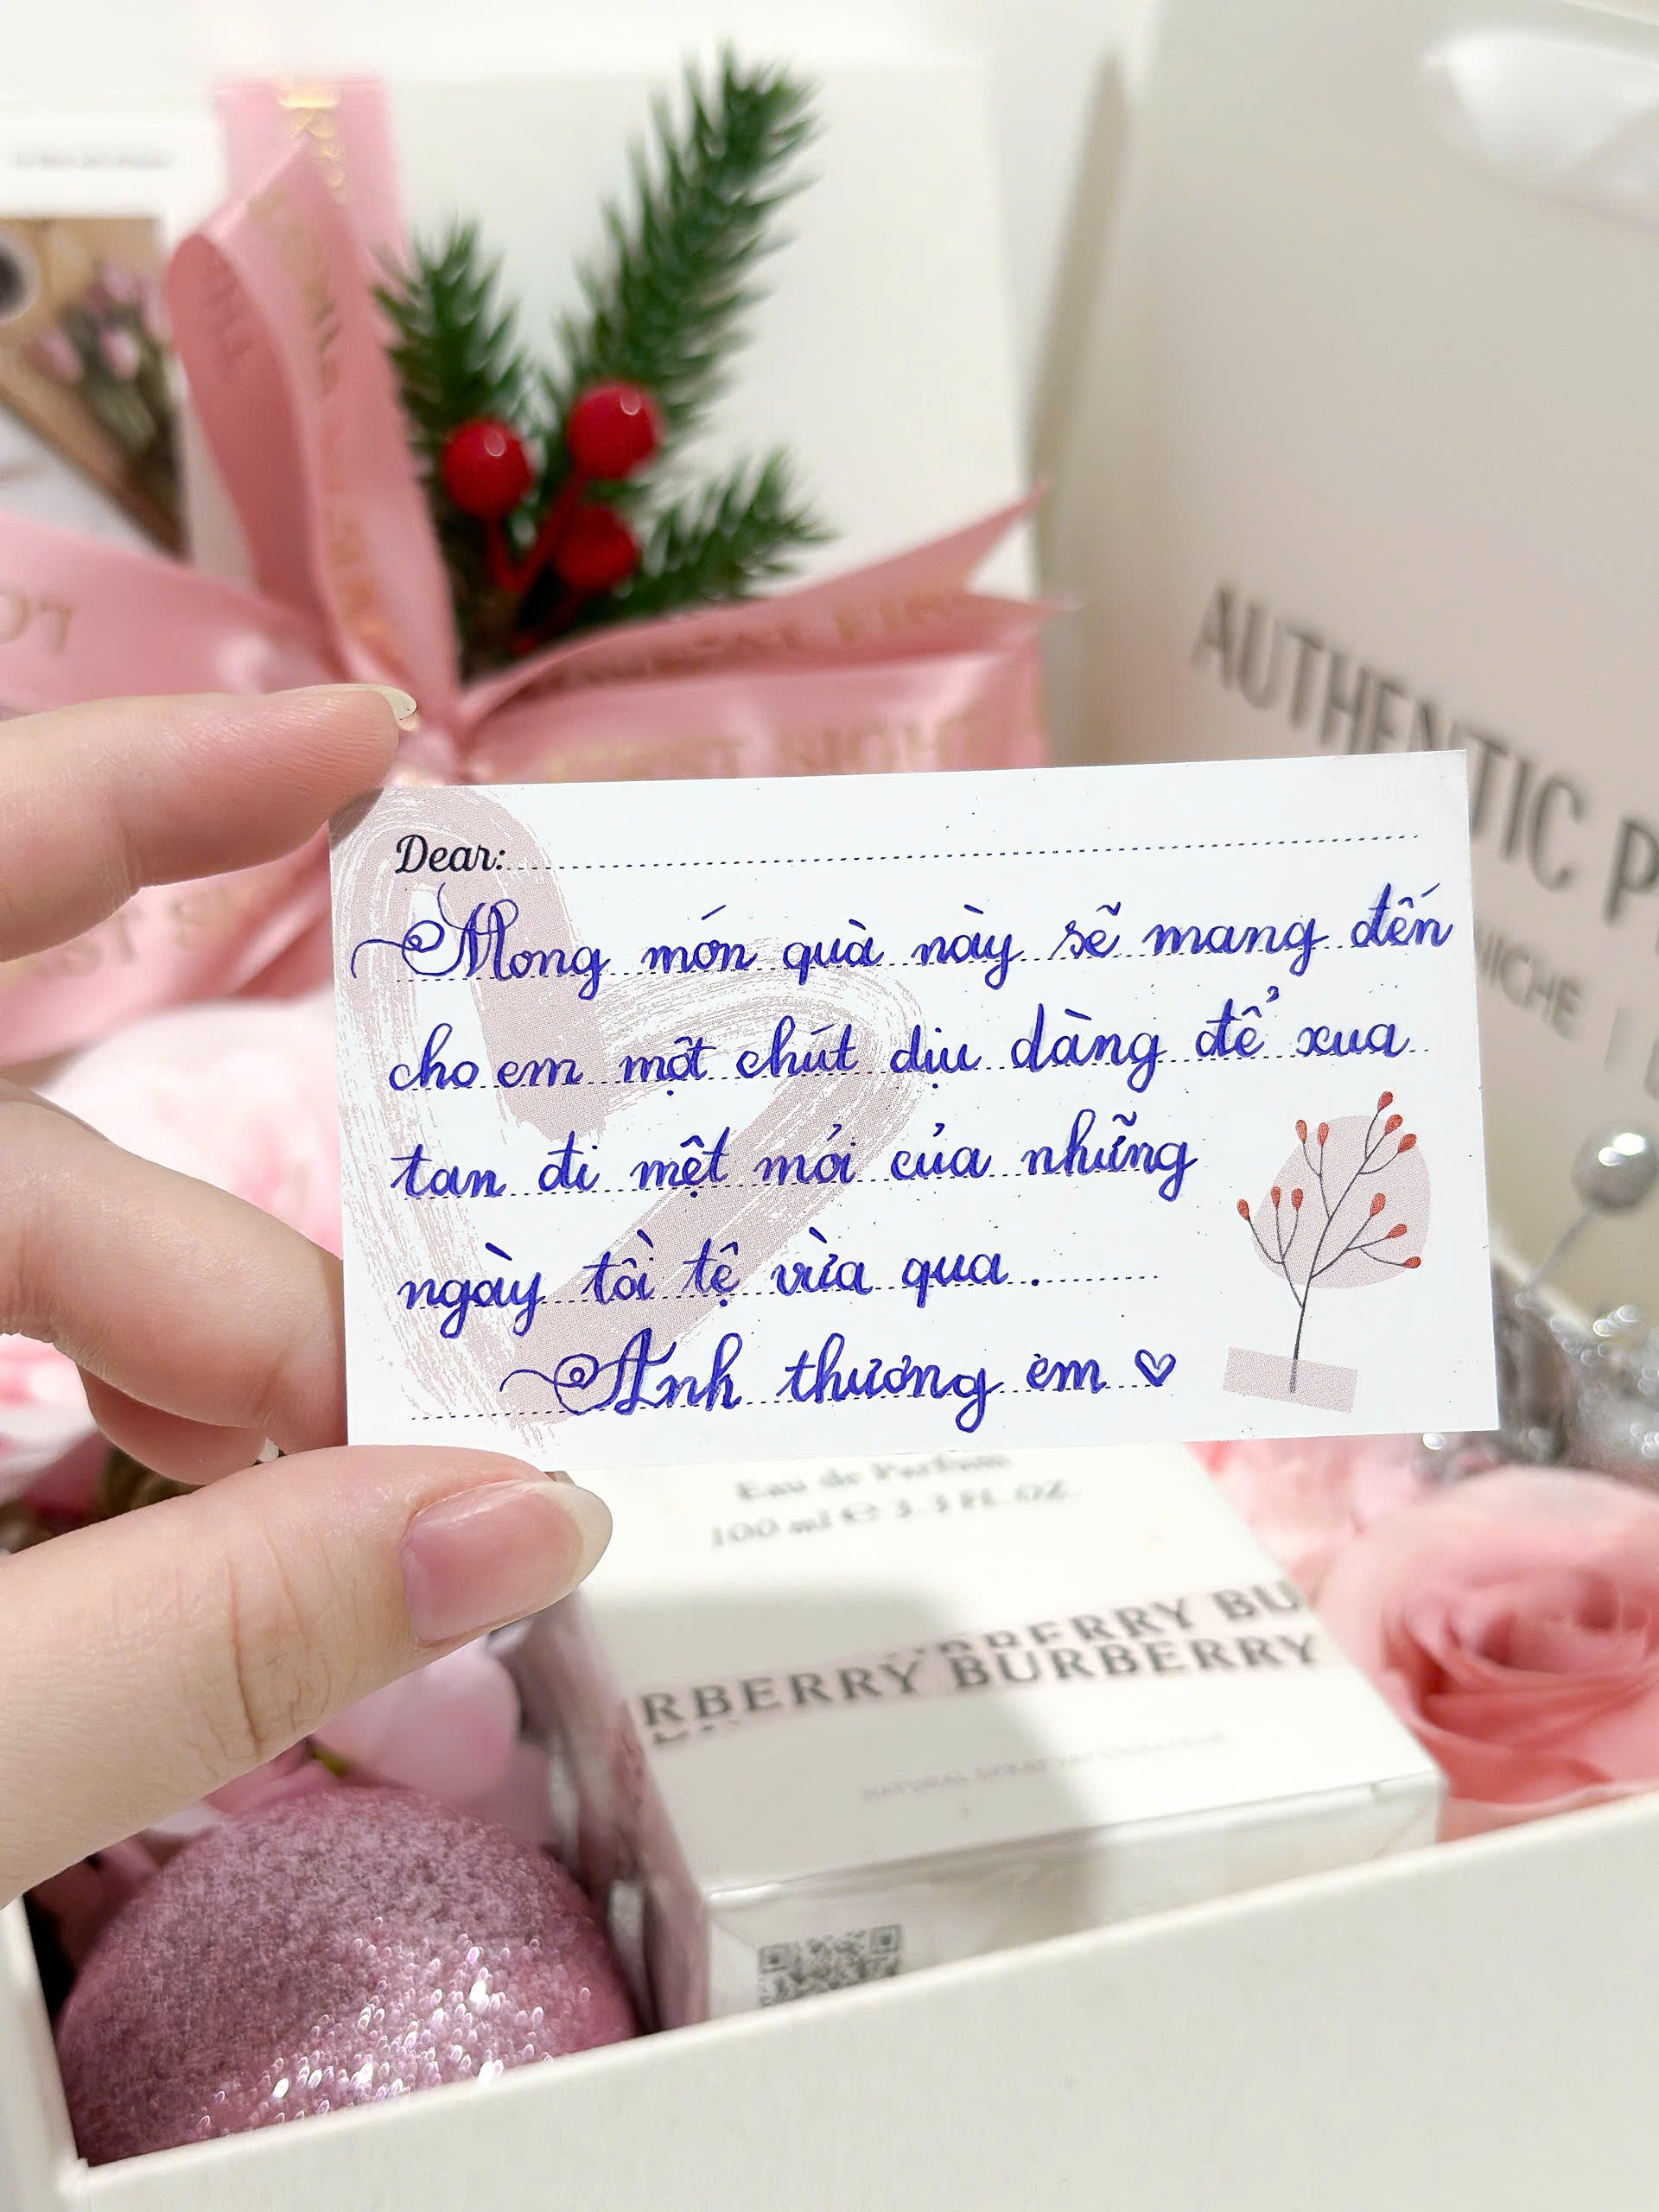 AUTHENTIC P
NICHE
Dear:
Mong món quà này sẽ mang đến
cho em một chút dịu dàng để xua
tan đi mệt mỏi của những
ngày tồi tệ vừa qua.
Anh thương em ♡
Eau de Parfum
100 ml e 3.3 FL.OZ.
RBERRY BU
RBERRY BURBERRY
NATURAL SPRAY